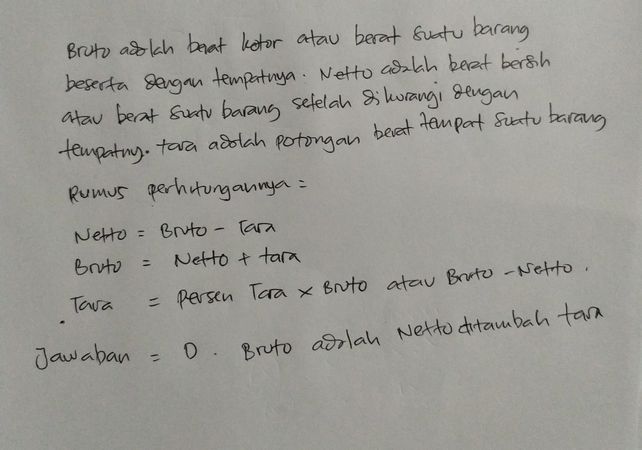 Bruto adalah berat kotor atau berat suatu barang
beserta dengan tempatnya. Netto adalah berat bersih
atau berat suatu barang setelah dikurangi dengan
tempatny. tara adalah potongan berat tempat suatu barang
Rumus perhitungannya =
Netto = Bruto - Tara
Bruto = Netto + tara
Tara = persen Tara x Bruto atau Bruto - Netto.
Jawaban = D. Bruto adalah Netto ditambah tara